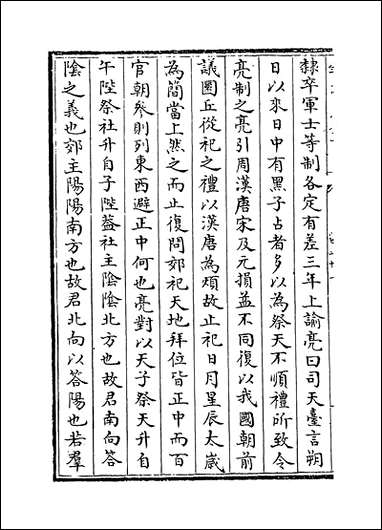 隸卒軍士等制各定有差三年上諭亮曰司天臺言朔
日以來日中有黑子占者多以為祭天不順禮所致令
亮制之亮引周漢唐宋及元損益不同復以我國朝前
議圜丘從祀之禮以漢唐為煩故止祀日月星辰太歲
為簡當上然之而止復問郊祀天地拜位皆正中而百
官朝參則列東西避正中何也亮對以天子祭天升自
午陛祭社升自子陛葢社主陰陰北方也故君南向答
陰之義也郊主陽陽南方也故君北向以答陽也若羣